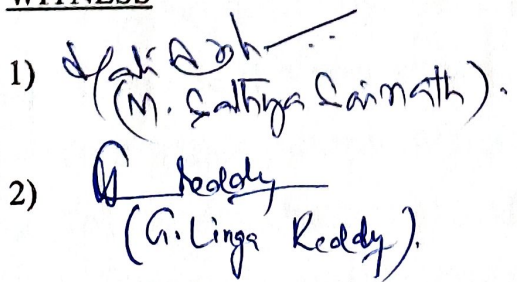 WITNESS
1)
(M. Sathya Sainath).
2) G Reddy
(G. Linga Reddy).